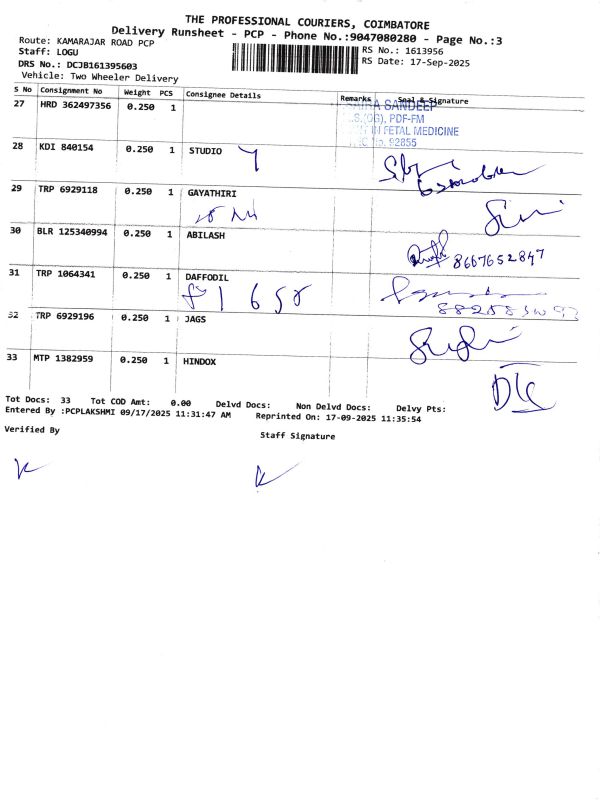 THE PROFESSIONAL COURIERS, COIMBATORE
Delivery Runsheet - PCP - Phone No.:9047080280 - Page No.:3
Route: KAMARAJAR ROAD PCP
Staff: LOGU
DRS No.: DCJB161395603
Vehicle: Two Wheeler Delivery
RS No.: 1613956
RS Date: 17-Sep-2025
S No Consignment No Weight PCS Consignee Details Remarks Seal & Signature
27 HRD 362497356 0.250 1
SANDEEP
PDF-FM
IN FETAL MEDICINE
No. 92855
28 KDI 840154 0.250 1 STUDIO
29 TRP 6929118 0.250 1 GAYATHIRI
30 BLR 125340994 0.250 1 ABILASH
8667652847
31 TRP 1064341 0.250 1 DAFFODIL
32 TRP 6929196 0.250 1 JAGS
33 MTP 1382959 0.250 1 HINDOX
Tot Docs: 33 Tot COD Amt: 0.00 Delvd Docs: Non Delvd Docs: Delvy Pts:
Entered By :PCPLAKSHMI 09/17/2025 11:31:47 AM Reprinted On: 17-09-2025 11:35:54
Verified By
Staff Signature